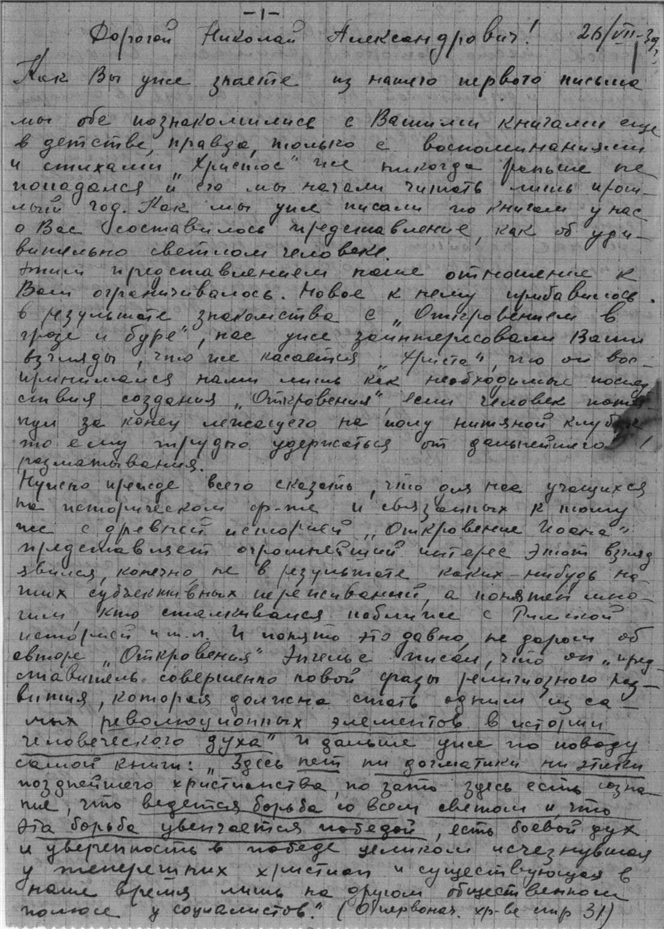 -1-
Дорогой Николай Александрович! 26/VII-39г.
Как Вы уже знаете из нашего первого письма
мы обе познакомились с Вашими книгами еще
в детстве, правда, только с воспоминаниями
и стихами „Христос" же никогда раньше не
попадался и его мы начали читать лишь прош-
лый год. Как мы уже писали по книгам у нас
о Вас составилось представление, как об уди-
вительно светлом человеке.
Этим представлением наше отношение к
Вам ограничивалось. Новое к нему прибавилось
в результате знакомства с „Откровением в
грозе и буре", нас уже заинтересовали Ваши
взгляды, что же касается „Христа", что он вос-
принимался нами лишь как необходимые послед
ствия создания „Откровения", если человек потя
нул за конец лежащего на полу нитяной клубок
то ему трудно удержаться от дальнейшего
разматывания.
Нужно прежде всего сказать, что для нас учащихся
на историческом ф-те и связанных к тому
же с древней историей „Откровение Иоана"
представляет огромнейший интерес этот взгляд
явился, конечно, не в результате каких-нибудь на-
ших субъективных переживаний, а понятен мно-
гим, кто сталкивался поближе с Римской
историей и т.п. И понято это давно, не даром об
авторе „Откровения" Энгельс писал, что он „пред-
ставитель совершенно новой фазы религиозного раз-
вития, которая должна стать одним из са-
мых революционных элементов в истории
человеческого духа" и дальше уже по поводу
самой книги: „Здесь нет ни догматики ни этики
позднейшего христианства, но зато здесь есть созна-
ние, что ведется борьба со всем светом и, что
эта борьба увенчается победой, есть боевой дух
и уверенность в победе целиком исчезнувшая
у теперешних христиан и существующая в
наше время лишь на другом общественном
полюсе у социалистов." (О первонач. хр-ве стр 31)